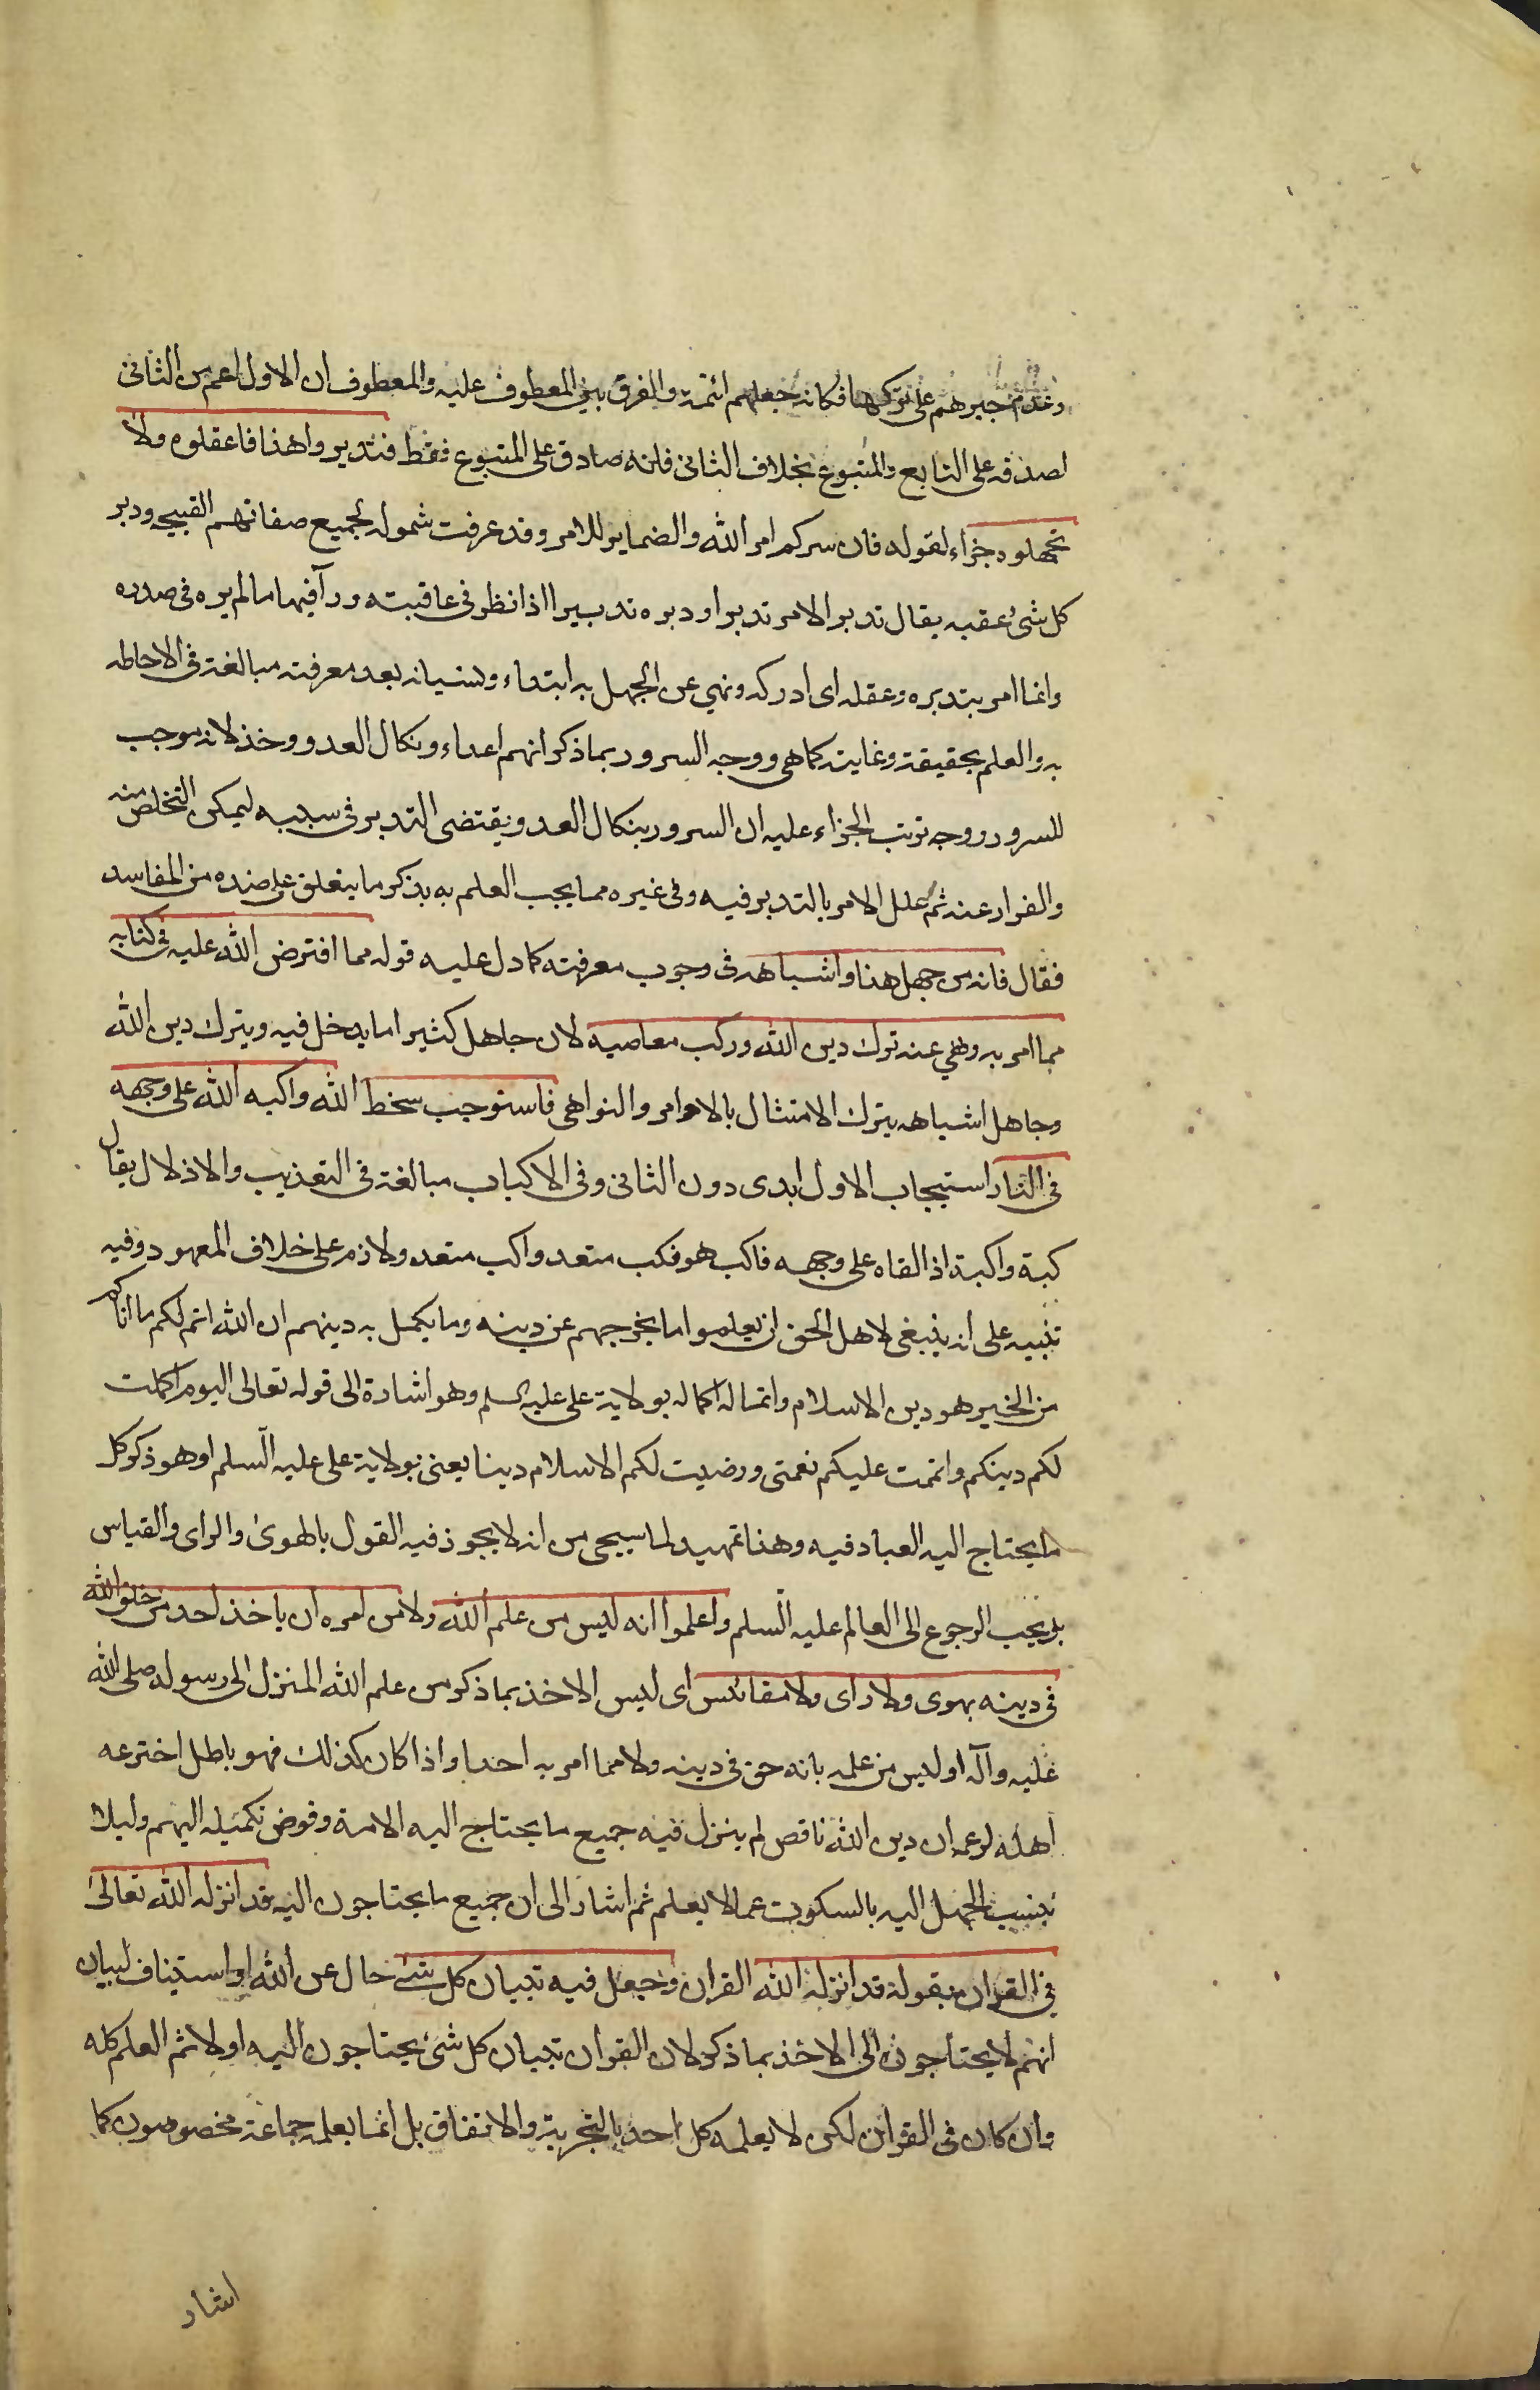 وعدم جبرهم على تركها فكانه جعلهم ائمة والفرق بين المعطوف عليه والمعطوف ان الاول اعم من الثانى
لصدقه على التابع والمتبوع بخلاف الثانى فانه صادق على المتبوع فقط فتدبروا هذا فاعقلوه ولا
تجهلوه جزاء لقوله فان سركم امر الله والضماير للامر وقد عرفت شموله لجميع صفاتهم القبيحه ودبر
كل شئ عقبه يقال تدبر الامر تدبرا ودبره تدبيرا اذا نظر فى عاقبته ورآ فيها ما لم يره فى صدره
وانما امر بتدبره وعقله اى ادركه ونهي عن الجهل به ابتداء ونسيانه بعد معرفته مبالغة فى الاحاطه
به والعلم بحقيقته وغايته كما هى ووجه السرور بما ذكر انهم اعداء ونكال العدو وخذلانه موجب
للسرور ووجه ترتب الجزاء عليه ان السرور بنكال العدو يقتضى التدبر فى سببه ليمكن التخلص منه
والفرار عنه ثم علل الامر بالتدبر فيه وفى غيره مما يجب العلم به بذكر ما يتعلق على ضده من المفاسد
فقال فانه من جهل هذا واشباهه فى وجوب معرفته كما دل عليه قوله مما افترض الله عليه فى كتابه
مما امر به ونهي عنه ترك دين الله وركب معاصيه لان جاهل كثيرا ما يدخل فيه ويترك دين الله
وجاهل اشباهه يترك الامتثال بالاوامر والنواهى فاستوجب سخط الله واكبه الله على وجهه
فى النار استيجاب الاول ابدى دون الثانى وفى الاكباب مبالغة فى التعذيب والاذلال يقال
كبة واكبة اذ القاه على وجهه فاكب هو فكب متعد واكب متعد ولازم على خلاف المعهود وفيه
تنبيه على انه ينبغى لاهل الحق ان يعلموا ما يخرجهم عن دينه وما يكمل به دينهم ان الله اتم لكم ما اتاكم
من الخير هو دين الاسلام واتماله اكماله بولاية على عليه السلم وهو اشارة الى قوله تعالى اليوم اكملت
لكم دينكم واتممت عليكم نعمتى ورضيت لكم الاسلام دينا يعنى بولاية على عليه السلم او هو ذكر كل
ما يحتاج اليه العباد فيه وهذا تمهيد لما سيجى من انه لا يجوز فيه القول بالهوى والراى والقياس
بل يجب الرجوع الى العالم عليه السلم واعلموا انه ليس من علم الله ولا من امره ان ياخذ احد من خلق الله
فى دينه بهوى ولا راى ولا مقائس اى ليس الاخذ بما ذكر من علم الله المنزل الى رسوله صلى الله
عليه وآله او ليس من علمه بانه حق فى دينه ولا مما امر به احدا واذا كان كذلك فهو باطل اخترعه
اهله لزعمه ان دين الله ناقص لم ينزل فيه جميع ما يحتاج اليه الامة وفوض تكميله اليهم ولئلا
ينسب الجهل اليه بالسكوت عما لا يعلم ثم اشار الى ان جميع ما يحتاجون اليه قد انزله الله تعالى
فى القرآن بقوله قد انزل الله القران وجعل فيه تبيان كل شئ حال عن الله او استيناف لبيان
انهم لا يحتاجون الى الاخذ بما ذكر لان القران تبيان كل شئ يحتاجون اليه اولا ثم العلم كله
وان كان فى القرآن لكن لا يعلمه كل احد بالتجربة والاتفاق بل انما يعلمه جماعة مخصوصون كما
اشار